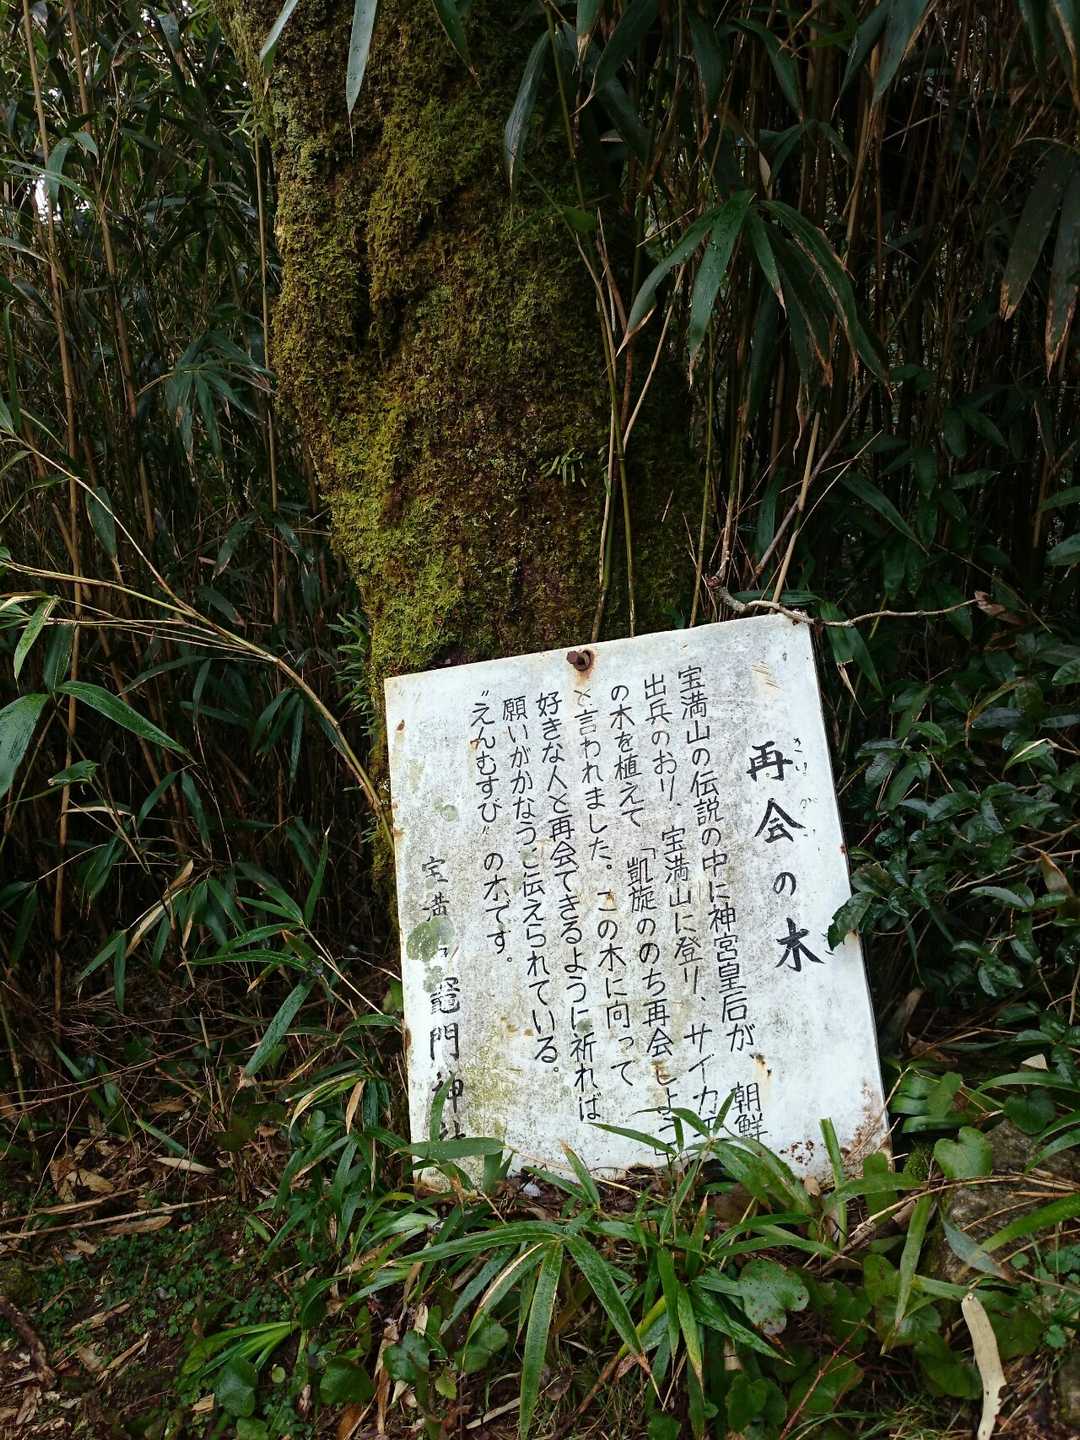 再会の木
さい かい
宝満山の伝説の中に神宮皇后が 朝鮮
出兵のおり、宝満山に登り、サイカチ
の木を植えて「凱旋ののち再会しよう
と言われました。この木に向って
好きな人と再会できるように祈れば
願いがかなうと伝えられている。
"えんむすび"の木です。
宝満 竈門神社